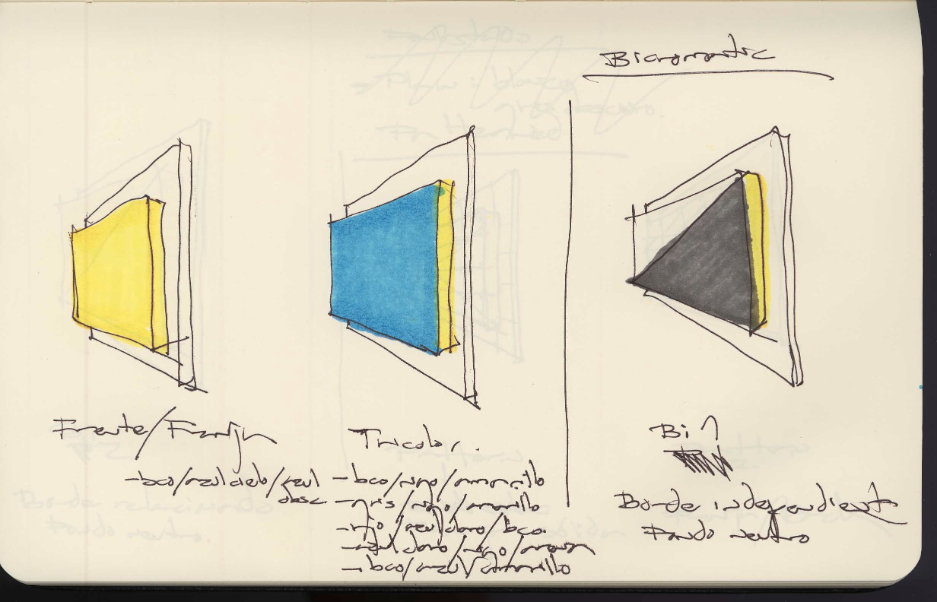 Bicromatic
Frente/Franja
-bco/azul cielo/azul
obsc
Tricolor.
-bco/rojo/amarillo
-gris/rojo/amarillo
-rojo/azul claro/bco.
-azul claro/rojo/
-bco/azul/amarillo
Bi
Borde independiente
Fondo neutro